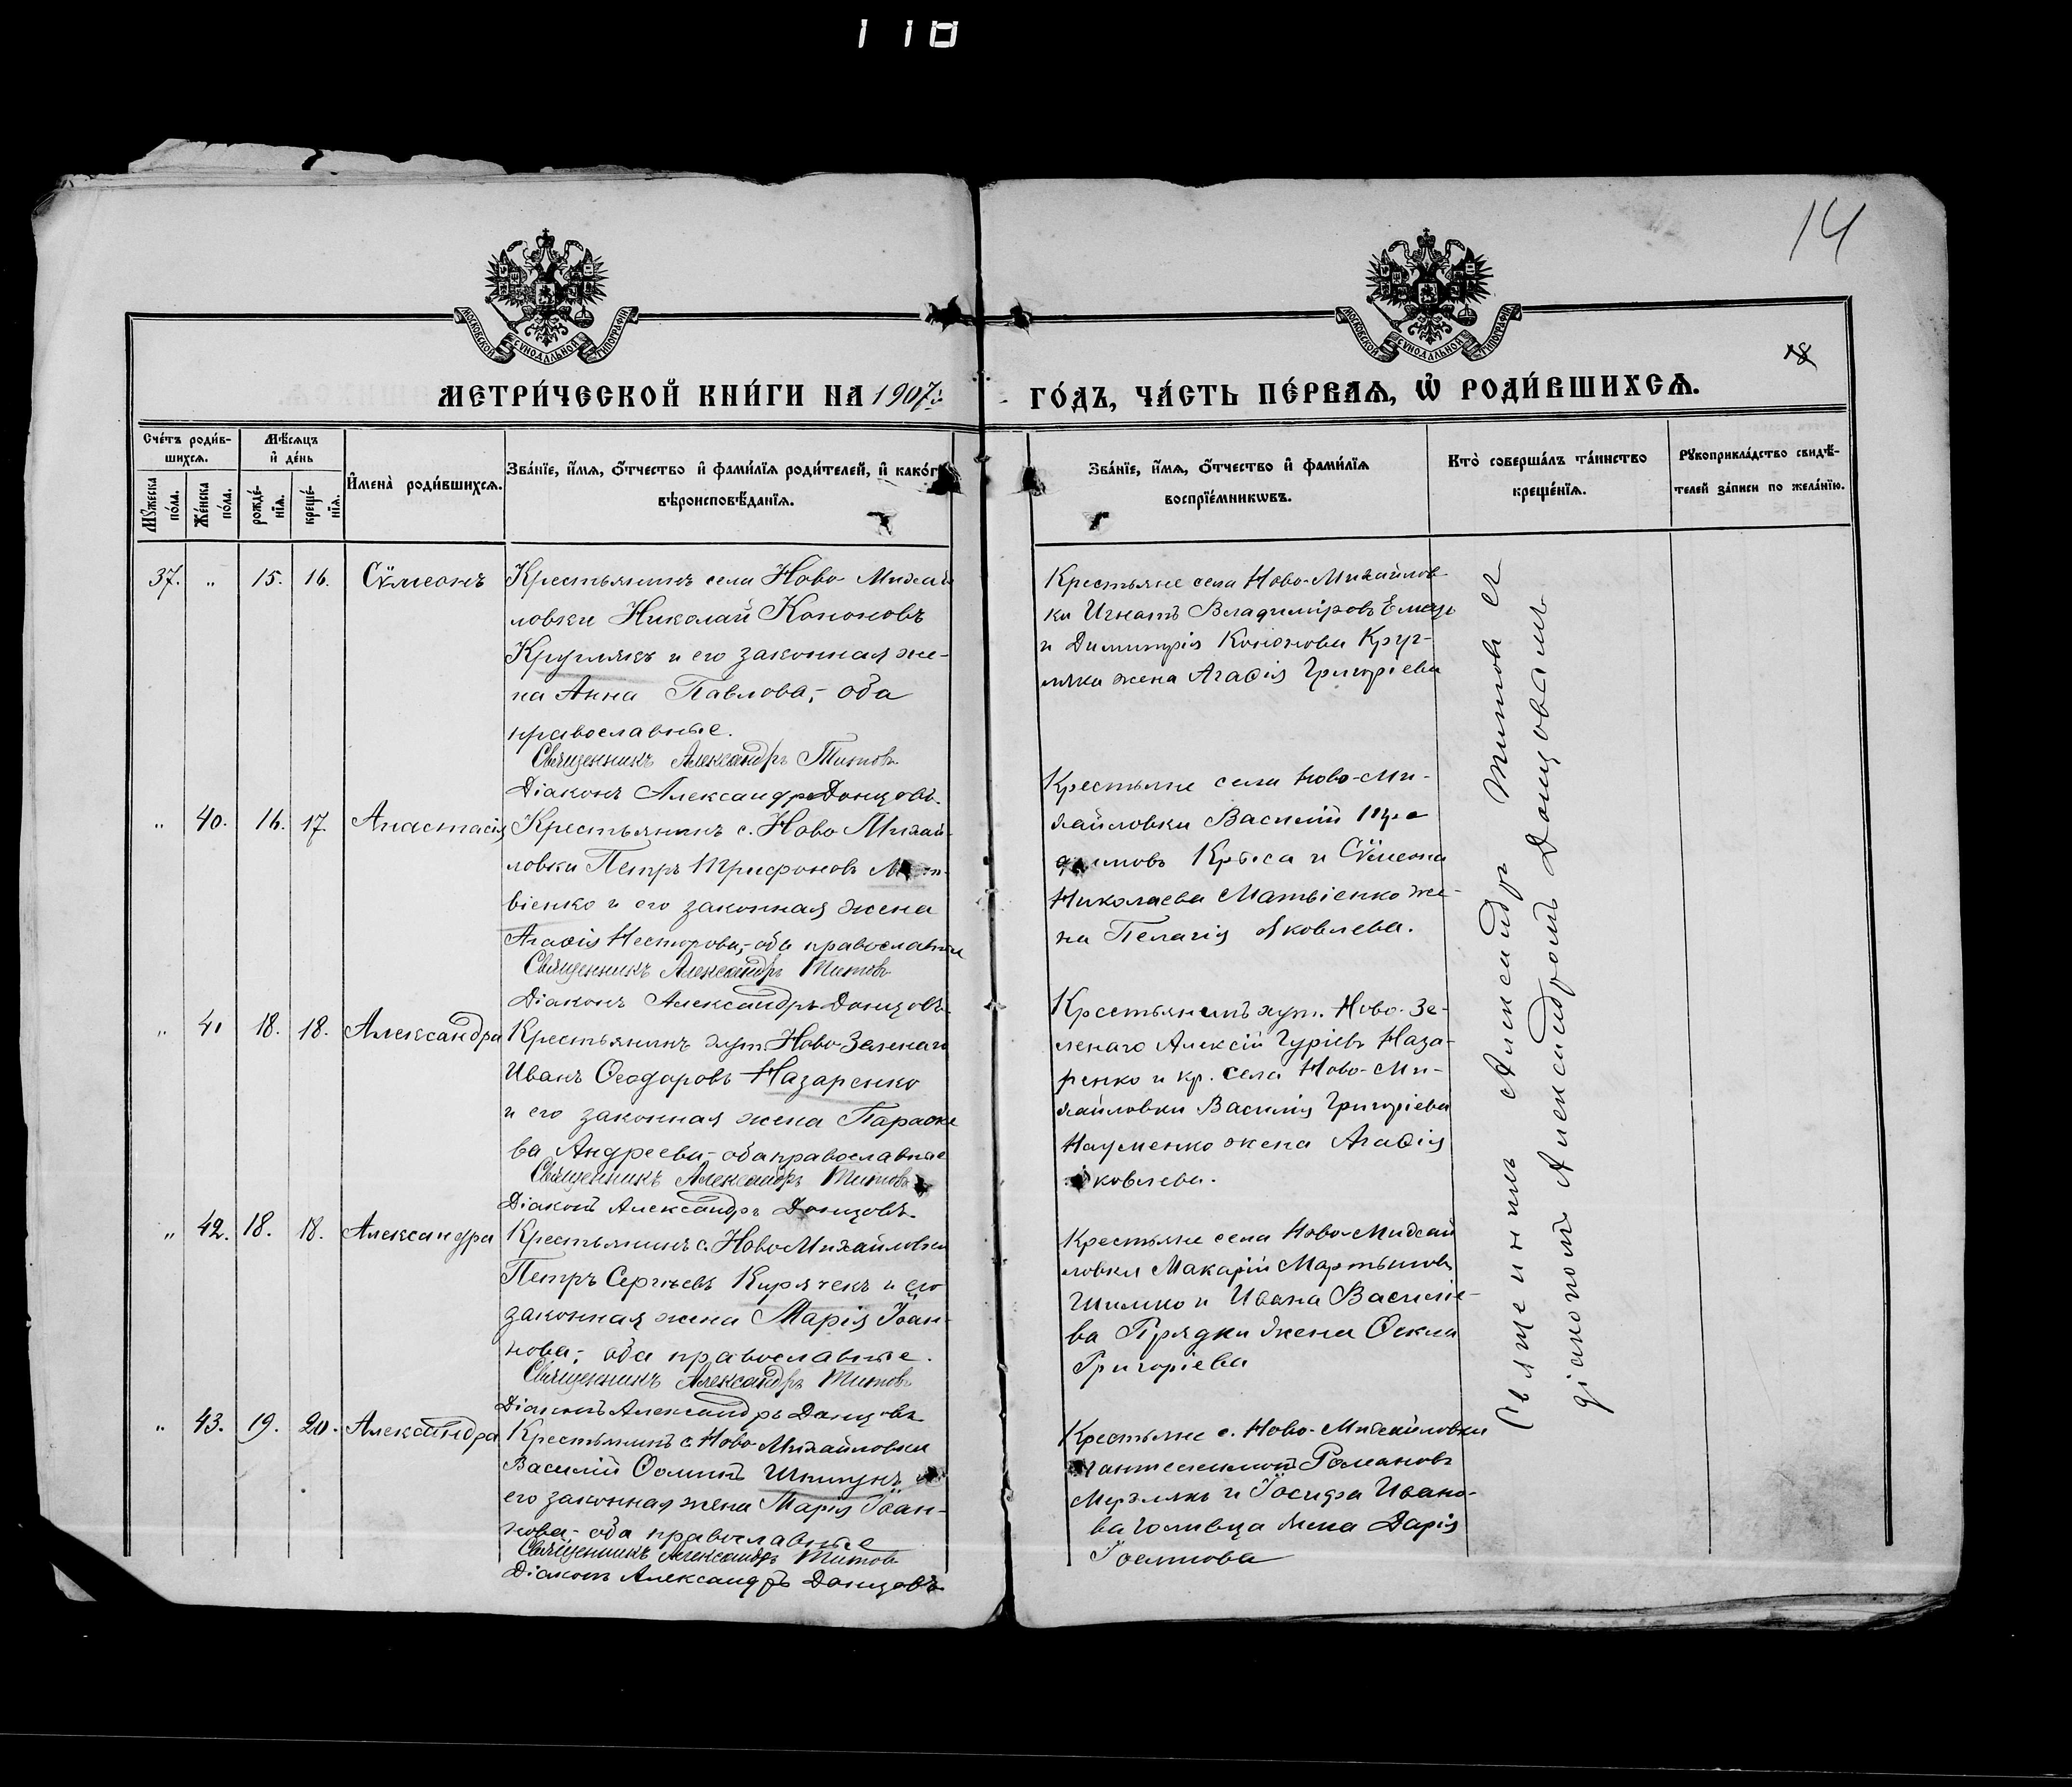 118
14
18
МОСКОВСКОЙ СѴНОДАЛЬНОЙ ТИПОГРАФІИ
МОСКОВСКОЙ СѴНОДАЛЬНОЙ ТИПОГРАФІИ
МЕТРИ́ЧЕСКОЙ КНИ́ГИ НА 1907й
ГО́ДЪ, ЧА́СТЬ ПЕ́РВАѦ, Ѡ҆ РОДИ́ВШИХСѦ.
Сче́тъ роди́в-
шихсѧ.
Мѣ́сѧцъ
и҆ де́нь
Мꙋ́жеска
по́ла.
Же́нска
по́ла.
рожде́-
нїѧ.
креще́-
нїѧ.
И҆мена̀ роди́вшихсѧ.
Зва́нїе, и҆́мѧ, ѻ҆́тчество и҆ фамі́лїѧ роди́телей, и҆ како́гѡ
вѣроисповѣ́данїѧ.
Зва́нїе, и҆́мѧ, ѻ҆́тчество и҆ фамі́лїѧ
воспрїе́мникѡвъ.
Кто̀ соверша́лъ та́инство
креще́нїѧ.
Рꙋкоприкла́дство свидѣ́-
телей за́писи по жела́нїю.
37. „ 15. 16. Сѵмеонъ
Крестьянинъ села Ново Михай
ловки Николай Кононовъ
Круглякъ и его законная же-
на Анна Павлова,- оба
православные.
Священникъ Александръ Титовъ
Діаконъ Александръ Донцовъ.
Крестьяне села Ново-Михайлов
ки Игнатъ Владиміровъ Емецъ
и Димитрія Кононова Круг-
ляка жена Агаѳія Григоріева
„ 40. 16. 17. Анастасія
Крестьянинъ с. Ново Михай-
ловки Петръ Трифоновъ
віенко и его законная жена
Агаѳія Несторова,- оба православные
Священникъ Александръ Титовъ
Діаконъ Александръ Донцовъ.
Крестьяне села Ново-Ми-
хайловки Василій
Крыса и Сѵмеона
Николаева Матвіенко же-
на Пелагія Яковлева.
„ 41 18. 18. Александра
Крестьянинъ хут. Ново-Зеленаго
Иванъ Ѳеодоровъ Назаренко
и его законная жена Параске
ва Андреева- оба православные
Священникъ Александръ Титовъ
Діаконъ Александръ Донцовъ.
Крестьянинъ хут. Ново-Зе-
ленаго Алексій Гуріевъ Наза-
ренко и кр. села Ново-Ми-
хайловки Василія Григоріева
Науменко жена Агаѳія
Яковлева.
„ 42. 18. 18. Александра
Крестьянинъ с. Ново Михайловки
Петръ Сергѣевъ Кирячекъ и его
законная жена Марія Іоан-
нова,- оба православные.
Священникъ Александръ Титовъ
Діаконъ Александръ Донцовъ
Крестьяне села Ново-Михай
ловки Макарій Мартыновъ
Шимко и Ивана Василіе-
ва Прядки жена Ѳекла
Григоріева
„ 43. 19. 20. Александра
Крестьянинъ с. Ново-Михайловки
Василій Ѳоминъ и
его законная жена Марія Іоан-
нова,- оба православные
Священникъ Александръ Титовъ
Діаконъ Александръ Донцовъ
Крестьяне с. Ново-Михайловки
Пантелеимонъ Романовъ
Мерзлякъ и Іосифа Ивано-
ва жена Дарія
Священникъ Александръ Титовъ съ
діакономъ Александромъ Донцовымъ